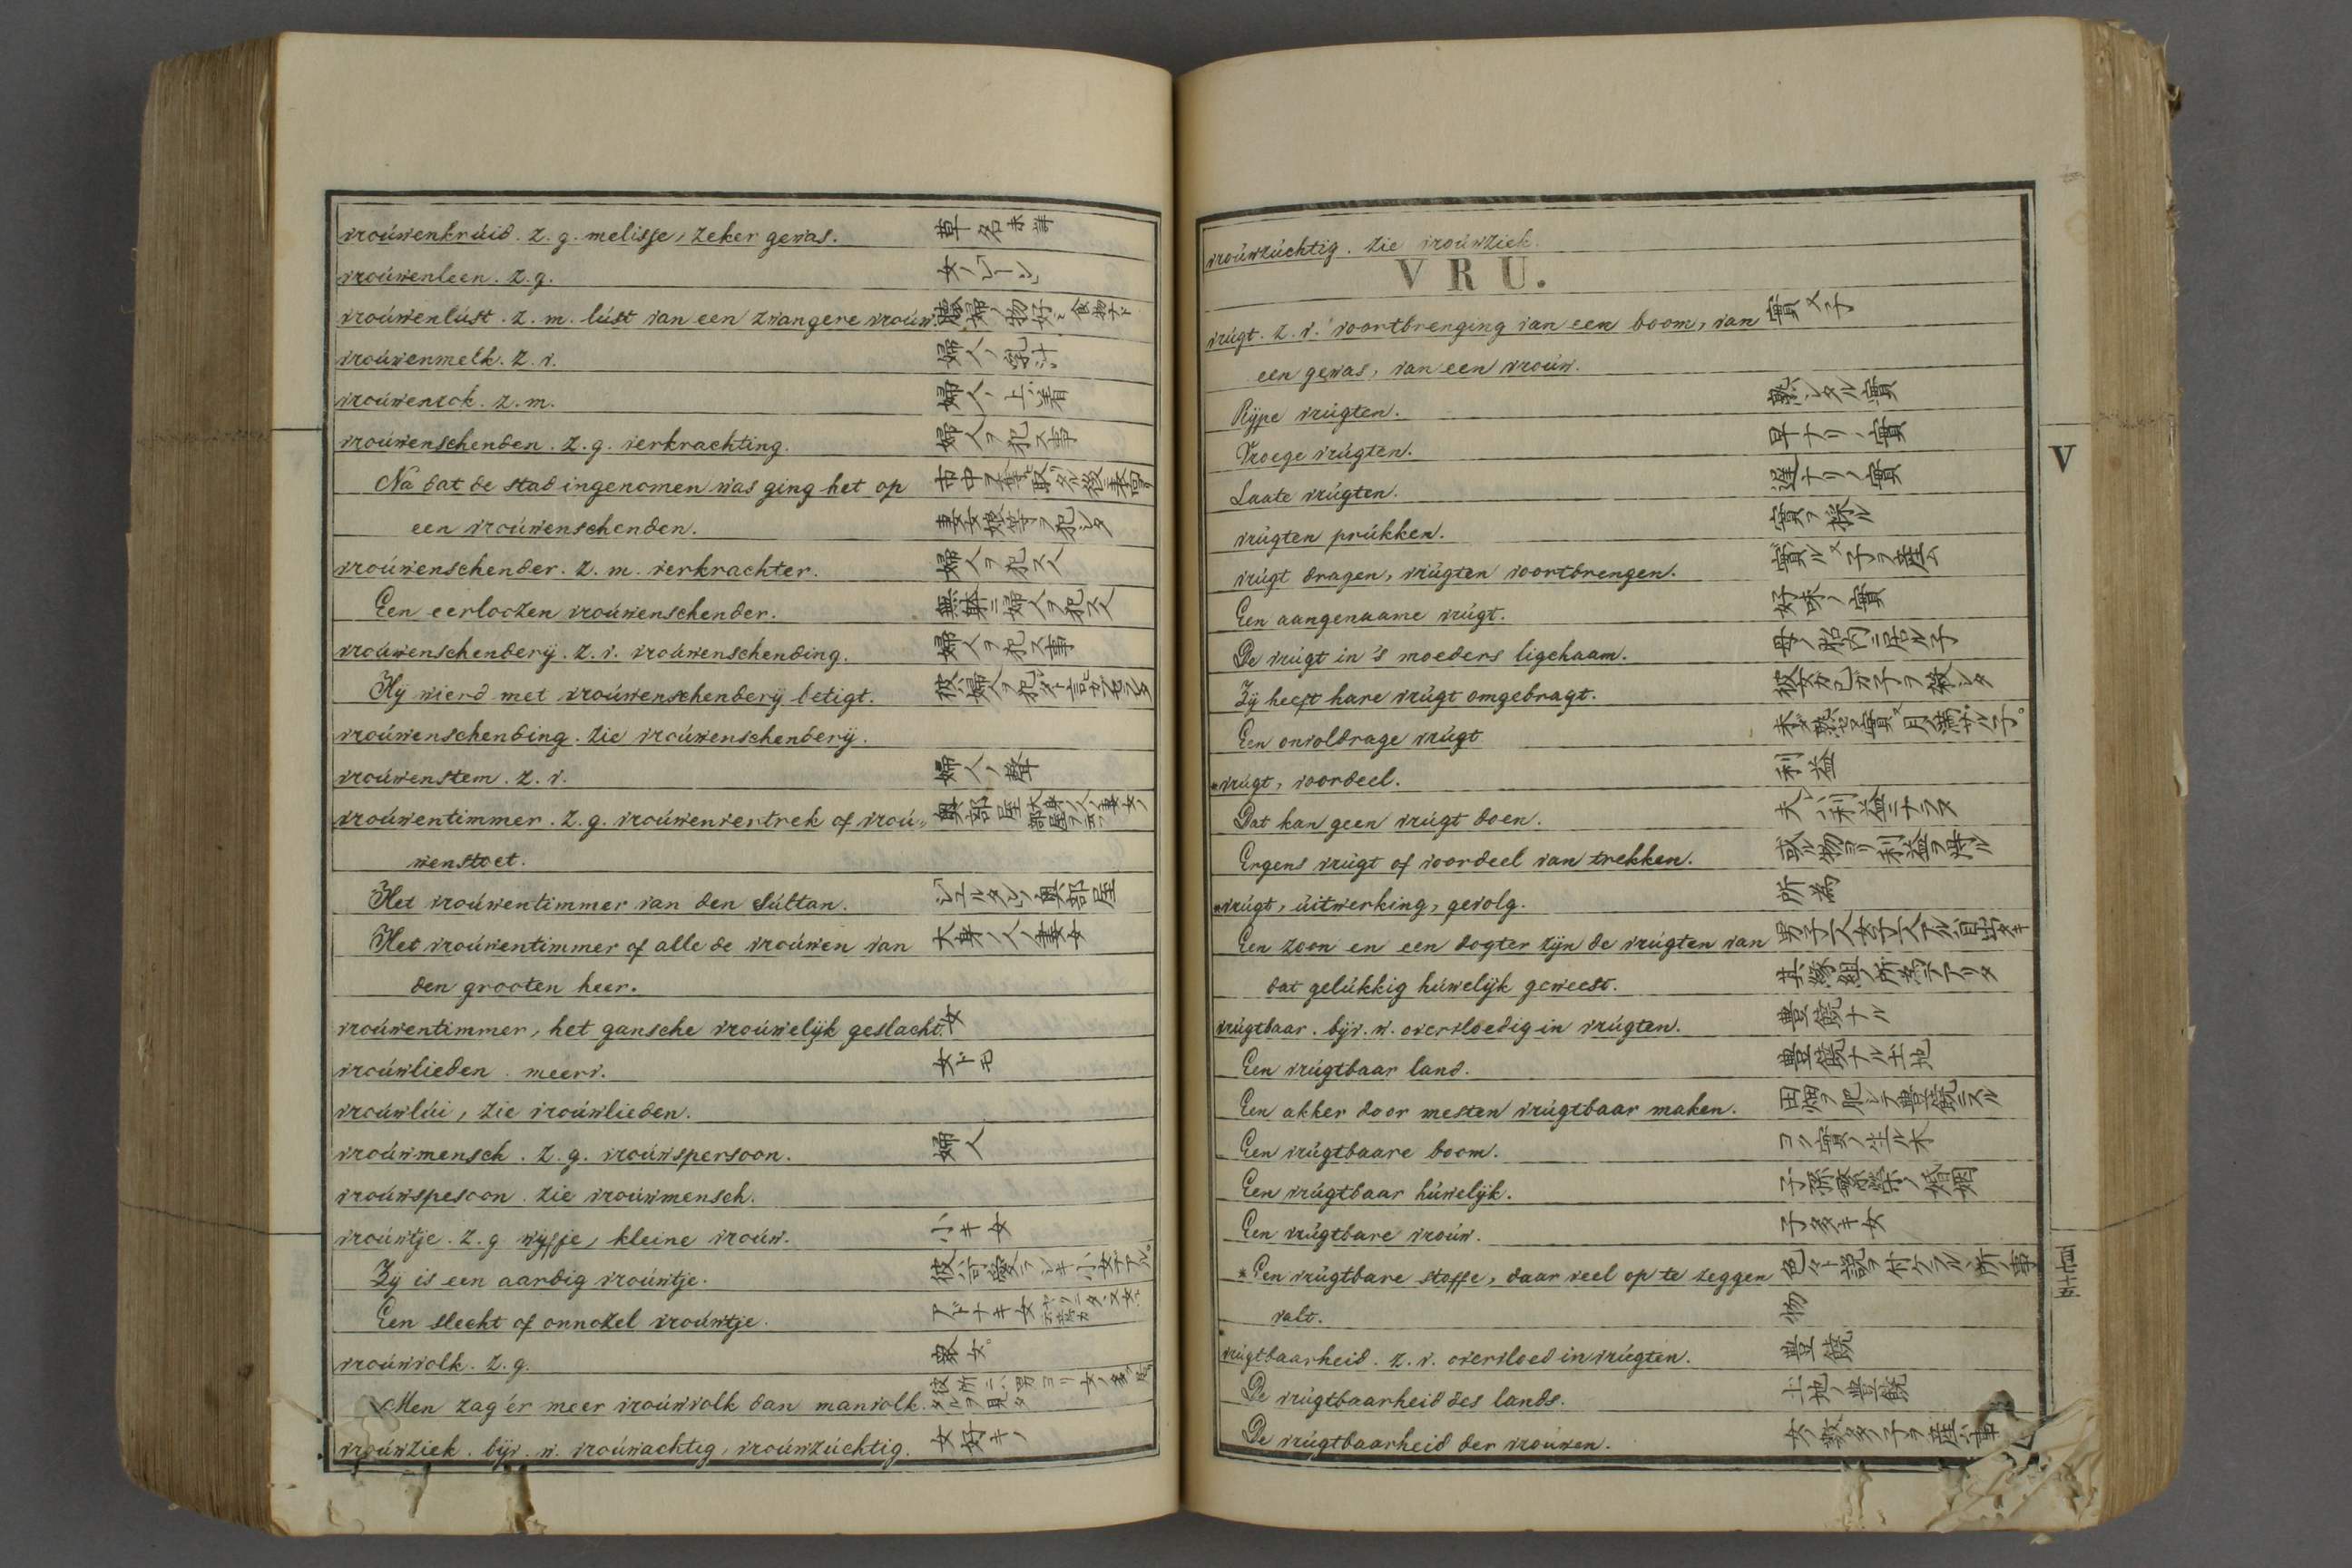 vroúwenkrúid. z. g. melisse, zeker gewas. 草名未詳
vroúwenleen. z. g.
vroúwenlúst. z. m. lúst van een zwangere vroúw.
vroúwenmelk. z. v. 婦人ノ乳汁
vroúwenrok. z. m. 婦人ノ上着
vroúwenschenden. z. g. verkrachting. 婦人ヲ犯ス事
Na dat de stad ingenomen was ging het op
een vroúwenschenden.
vroúwenschender. z. m. verkrachter. 婦人ヲ犯ス人
Een eerloozen vroúwenschender. 無躰ニ婦人ヲ犯ス人
vroúwenschenderij. z. v. vroúwenschending. 婦人ヲ犯ス事
Hij wierd met vroúwenschenderij betigt.
vroúwenschending. zie vroúwenschenderij.
vroúwenstem. z. v. 婦人ノ聲
vroúwentimmer. z. g. vroúwenvertrek of vroú- 奥部屋
wenstoet.
Het vroúwentimmer van den Súltan.
Het vroúwentimmer of alle de vroúwen van 大身ノ人ノ妻女
den grooten heer.
vroúwentimmer, het gansche vroúwelijk geslacht. 女
vroúwlieden. meerv. 女ドモ
vroúwlúi, zie vroúwlieden.
vroúwmensch. z. g. vroúwspersoon. 婦人
vroúwspesoon. zie vroúwmensch.
vroúwtje. z. g. wyfje, kleine vroúw. 小キ女
Zij is een aardig vroúwtje.
Een slecht of onnozel vroúwtje. アドナキ女
vroúwvolk. z. g.
Men zag ér meer vroúwvolk dan manvolk.
vroúwziek. bijv. w. vroúwachtig, vroúwzúchtig. 女好キノ
vroúwzúchtig. zie vroúwziek.
V R U.
vrúgt. z. v. voortbrenging van een boom, van 實又子
een gewas, van een vroúw.
Rijpe vrúgten. 熟シタル實
Vroege vrúgten. 早ナリノ實
Laate vrúgten. 遅ナリノ實
vrúgten prúkken. 實ヲ採ル
vrúgt dragen, vrúgten voortbrengen. 實ル又子ヲ産ム
Een aangenaame vrúgt. 好味ノ實
De vrúgt in 's moeders ligehaam. 母ノ胎内ニ居ル子
Zij heeft hare vrúgt omgebragt. 彼女ガ己ガ子ヲ殺シタ
Een onvoldrage vrúgt
*vrúgt, voordeel. 利益
Dat kan geen vrúgt doen. 夫ハ利益ニナラヌ
Ergens vrúgt of voordeel van trekken. 或ル物ヨリ利益ヲ得ル
*vrúgt, úitwerking, gevolg. 所為
Een zoon en een dogter zijn de vrúgten van
dat gelúkkig húwelijk geweest.
vrúgtbaar. bijv. w. overvloedig in vrúgten. 豊饒ナル
Een vrúgtbaar land. 豊饒ナル土地
Een akker door mesten vrúgtbaar maken. 田畑ヲ肥シテ豊饒ニスル
Een vrúgtbaare boom. ヨク實ノ生ル木
Een vrúgtbaar húwelijk. 子孫繁榮ノ婚姻
Een vrúgtbare vroúw. 子多キ女
*Een vrúgtbare stoffe, daar veel op te zeggen
valt. 物
vrúgtbaarheid. z. v. overvloed in vrúgten. 豊饒
De vrúgtbaarheid des lands. 土地ノ豊饒
De vrúgtbaarheid der vroúwen.
V